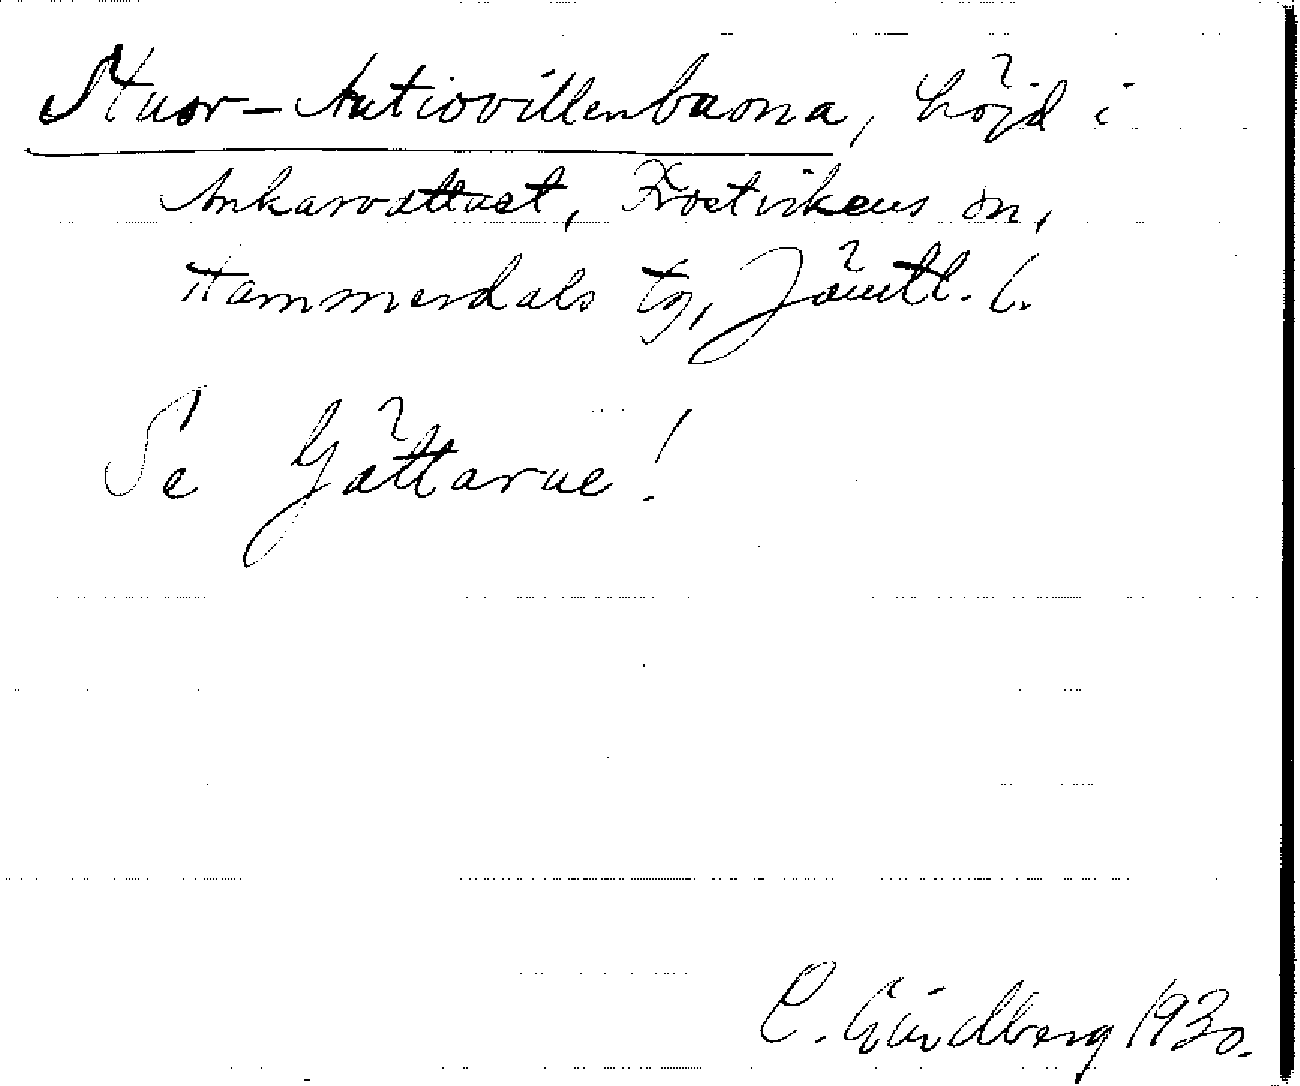 Stuor-Autiovillenbuona, höjd i
Ankarvattnet, Frostvikens sn,
Hammerdals tg, Jämtl. l.
Se Gättarue!
C. Lindberg 1930.